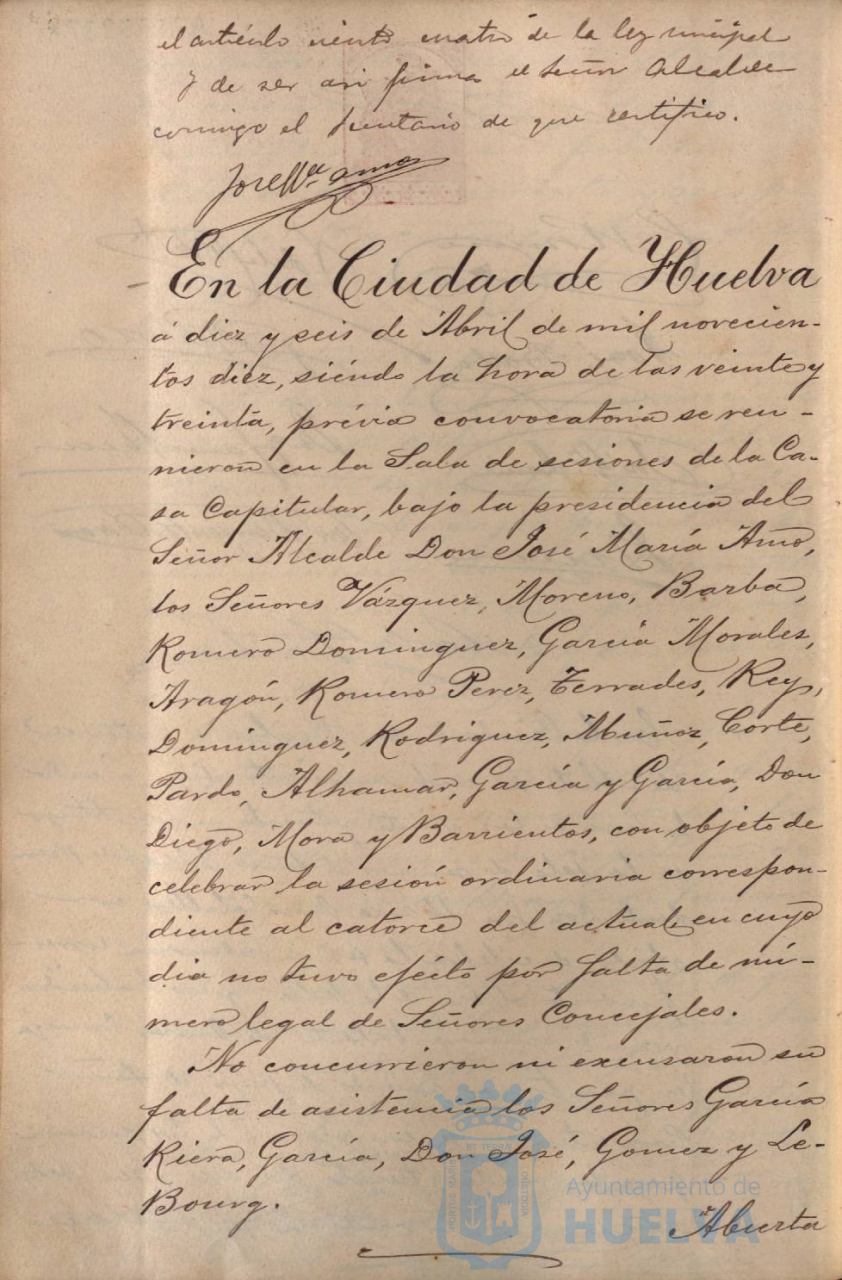 el artículo ciento cuatro de la ley municipal
y de ser asi firma el Señor Alcalde
comingo el Secretario de que certifico.
José Mª Amo
En la Ciudad de Huelva
á diez y seis de Abril de mil novecien-
tos diez, siéndo la hora de las veinte y
treinta, prévia convocatoria se reu-
nieron en la Sala de sesiones de la Ca-
sa Capitular, bajo la presidencia del
Señor Alcalde Don José María Amo,
los Señores Vázquez, Moreno, Barba,
Romero Dominguez, García Morales,
Aragón, Romero Perez, Terrades, Rey,
Dominguez, Rodriguez, Muñoz, Corte,
Pardo, Alhamar, García y García, Don
Diego, Mora y Barrientos, con objeto de
celebrar la sesión ordinaria correspon-
diente al catorce del actual, en cuyo
dia no tuvo efécto por falta de nú-
mero legal de Señores Concejales.
No concurrieron ni excusaron su
falta de asistencia los Señores García
Riera, García, Don José, Gomez y Le-
Bourg.
Ayuntamiento de
HUELVA
Abierta